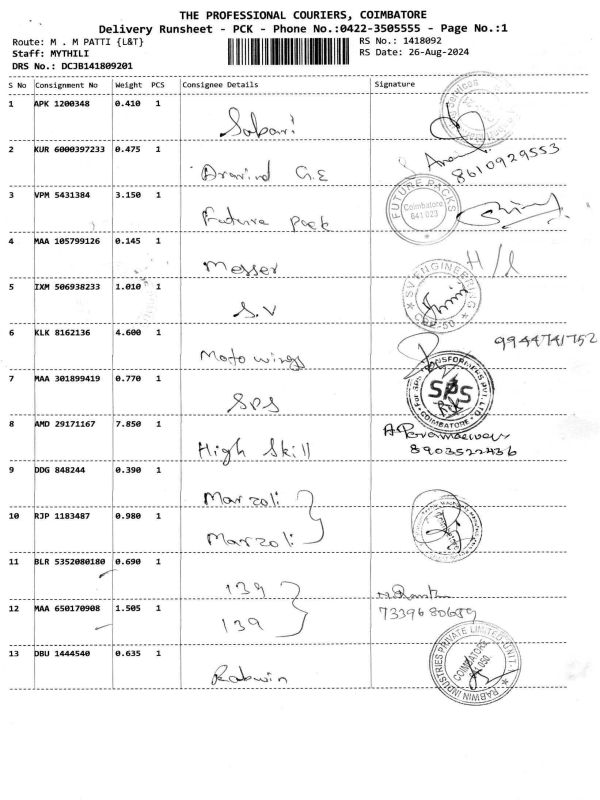 THE PROFESSIONAL COURIERS, COIMBATORE
Delivery Runsheet - PCK - Phone No.:0422-3505555 - Page No.:1
Route: M . M PATTI {L&T} RS No.: 1418092
Staff: MYTHILI RS Date: 26-Aug-2024
DRS No.: DCJB141809201
S No Consignment No Weight PCS Consignee Details Signature
1 APK 1200348 0.410 1
Sabari
2 KUR 6000397233 0.475 1
Aravind G.E
8610929553
3 VPM 5431384 3.150 1
Future pack
FUTURE PACKS Coimbatore 641 023
4 MAA 105799126 0.145 1
Messer H/S
5 IXM 506938233 1.010 1
S.V
SV ENGINEERING
6 KLK 8162136 4.600 1
Moto wings 9944741752
7 MAA 301899419 0.770 1
SPS
For SPS TRANSFORMERS PVT. LTD. SPS COIMBATORE
8 AMD 29171167 7.850 1
High Skill 8903522436
9 DDG 848244 0.390 1
Marzoli
10 RJP 1183487 0.980 1
Marzoli
11 BLR 5352080180 0.690 1
139
12 MAA 650170908 1.505 1
139 7339680689
13 DBU 1444540 0.635 1
Rabwin
RABWIN INDUSTRIES PRIVATE LIMITED UNIT-1 COIMBATORE 641050